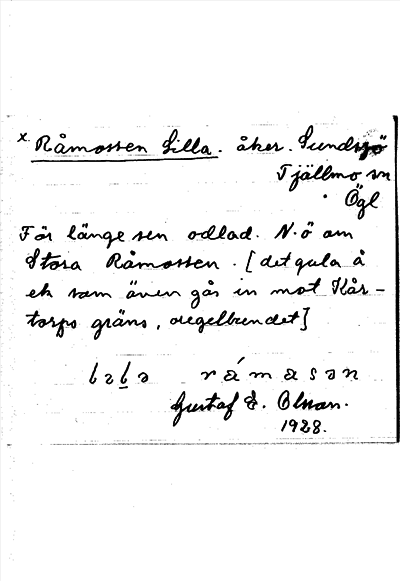 x. Råmossen Lilla. åker. Sundsjö
Tjällmo sn
Ögl
För länge sen odlad. N.ö om
Stora Råmossen. [det gula å
ek som även går in mot Kår-
torps gräns, oregelbundet]
lələ råmɑsən
Gustaf E. Olsson.
1928.